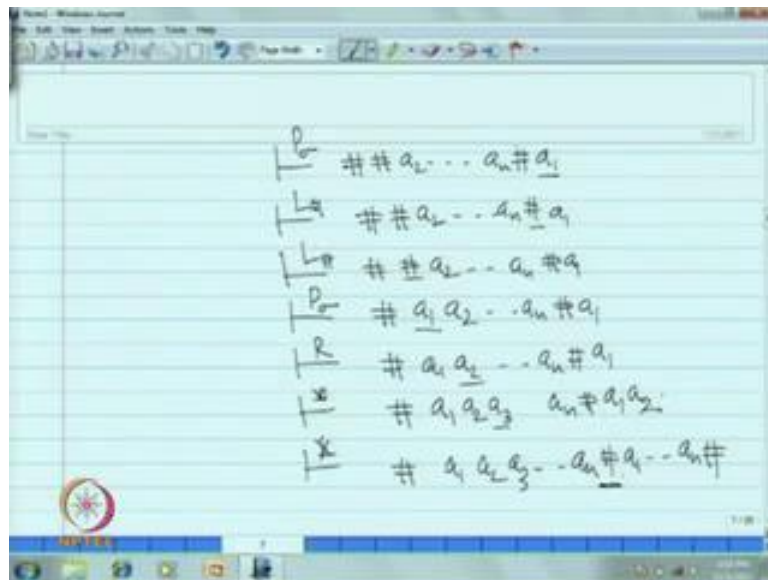 Note1 - Windows Journal
File Edit View Insert Actions Tools Help
Page Width
⊢ Pσ # # a₂ - - - aₙ # a₁
⊢ L# # # a₂ - - aₙ # a₁
⊢ L# # # a₂ - - aₙ # a₁
⊢ Pσ # a₁ a₂ - - aₙ # a₁
⊢ R # a₁ a₂ - - aₙ # a₁
⊢ * # a₁ a₂ a₃ aₙ # a₁ a₂
⊢ * # a₁ a₂ a₃ - - aₙ # a₁ - - aₙ #
NPTEL